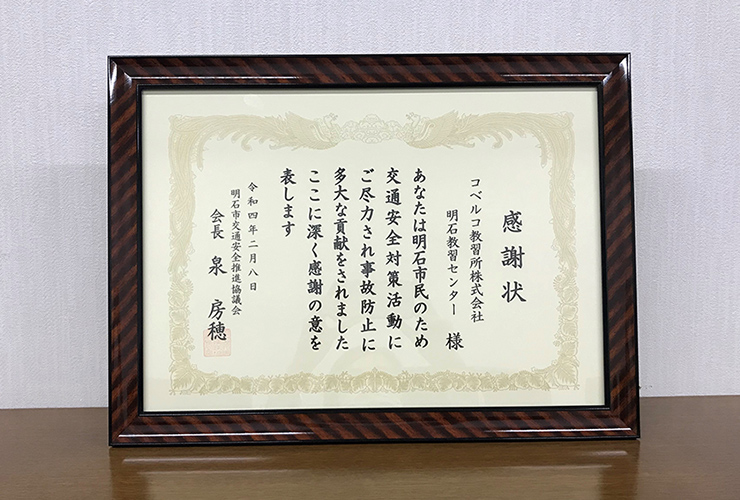 感謝状
コベルコ教習所株式会社
明石教習センター 様
あなたは明石市民のため
交通安全対策活動に
ご尽力され事故防止に
多大な貢献をされました
ここに深く感謝の意を
表します
令和四年二月八日
明石市交通安全推進協議会
会長 泉 房穂